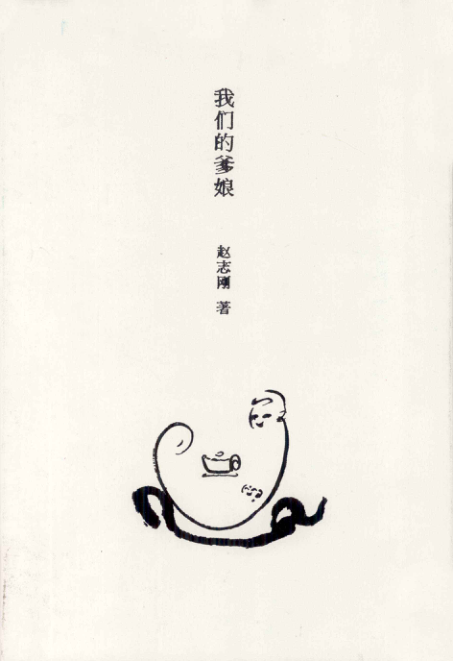 我们的爹娘
赵志刚 著